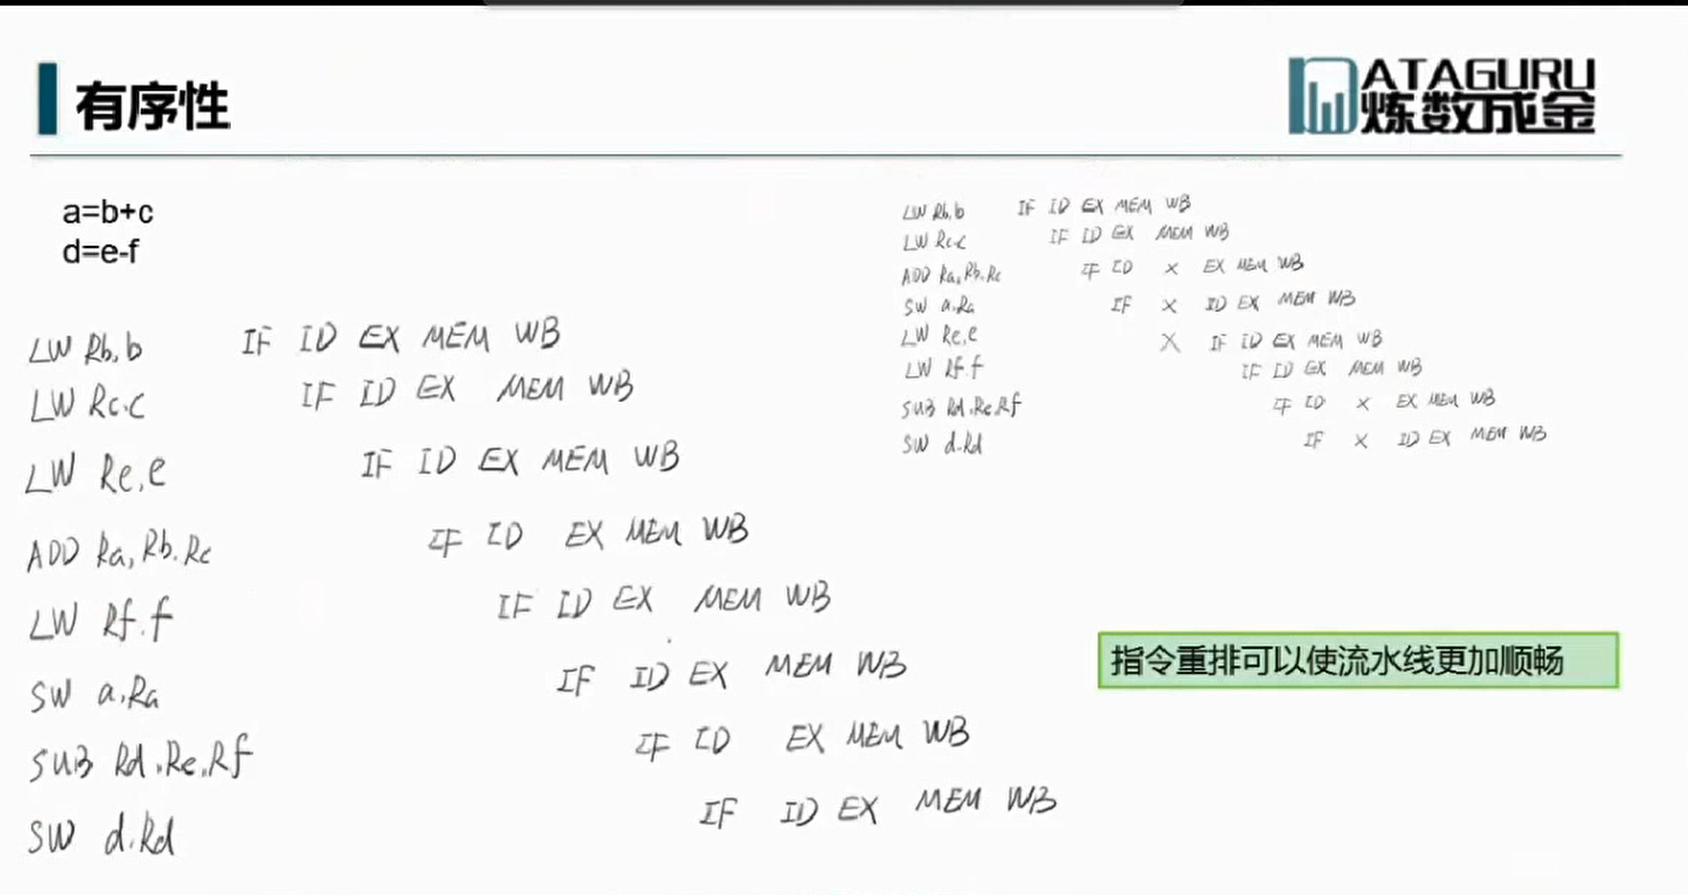 有序性
DATAGURU
炼数成金
a=b+c
d=e-f
LW Rb,b IF ID EX MEM WB
LW Rc.c IF ID EX MEM WB
LW Re,e IF ID EX MEM WB
ADD Ra,Rb.Rc IF ID EX MEM WB
LW Rf.f IF ID EX MEM WB
SW a,Ra IF ID EX MEM WB
SUB Rd,Re,Rf IF ID EX MEM WB
SW d.Rd IF ID EX MEM WB
LW Rb,b IF ID EX MEM WB
LW Rc.c IF ID EX MEM WB
ADD Ra,Rb.Rc IF ID × EX MEM WB
SW a.Ra IF × ID EX MEM WB
LW Re,e × IF ID EX MEM WB
LW Rf.f IF ID EX MEM WB
SUB Rd.Re.Rf IF ID × EX MEM WB
SW d.Rd IF × ID EX MEM WB
指令重排可以使流水线更加顺畅